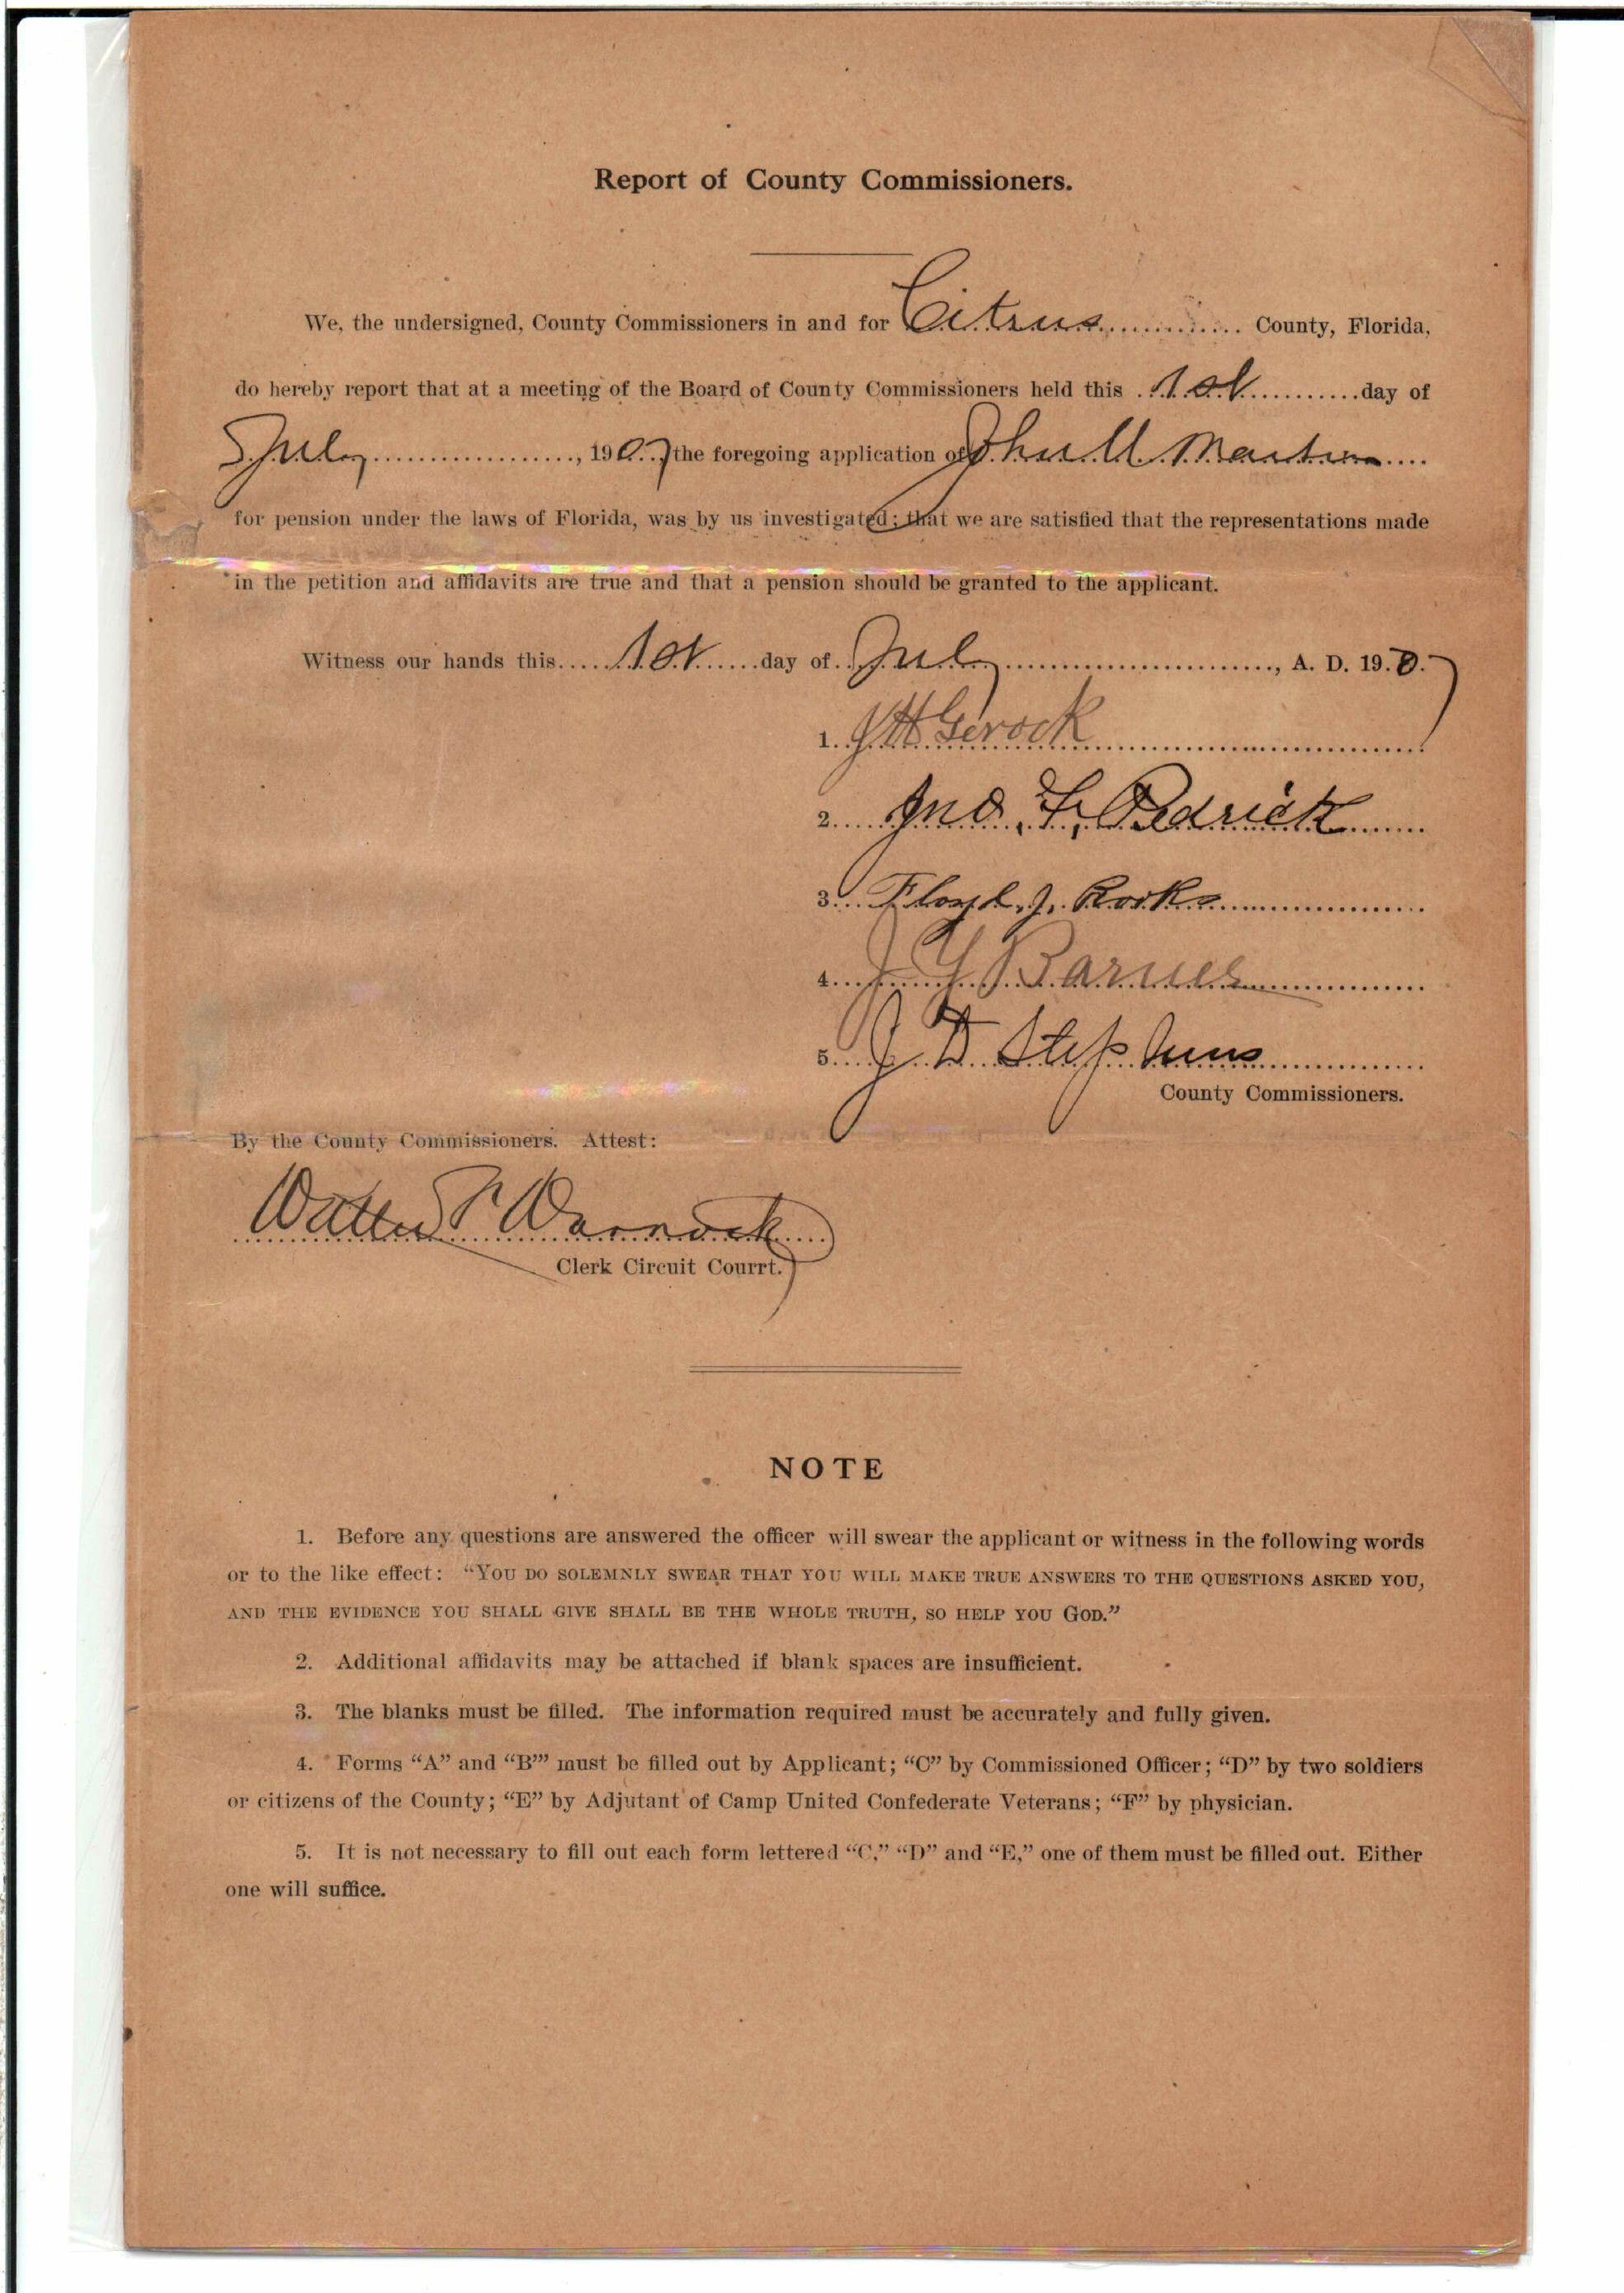 Report of County Commissioners.
We, the undersigned, County Commissioners in and for Citrus County, Florida,
do hereby report that at a meeting of the Board of County Commissioners held this 1st day of
July, 1907 the foregoing application of John M Martin
for pension under the laws of Florida, was by us investigated; that we are satisfied that the representations made
in the petition and affidavits are true and that a pension should be granted to the applicant.
Witness our hands this 1st day of July, A. D. 1907
1. J H Gerock
2. Jno. F. Pedrick
3. Floyd. J. Rooks
4. J Y Barnes
5. J. D. Stephens
County Commissioners.
By the County Commissioners. Attest:
Walter P Warnock
Clerk Circuit Courrt.
NOTE
1. Before any questions are answered the officer will swear the applicant or witness in the following words
or to the like effect: “YOU DO SOLEMNLY SWEAR THAT YOU WILL MAKE TRUE ANSWERS TO THE QUESTIONS ASKED YOU,
AND THE EVIDENCE YOU SHALL GIVE SHALL BE THE WHOLE TRUTH, SO HELP YOU GOD.”
2. Additional affidavits may be attached if blank spaces are insufficient.
3. The blanks must be filled. The information required must be accurately and fully given.
4. Forms “A” and “B”’ must be filled out by Applicant; “C” by Commissioned Officer; “D” by two soldiers
or citizens of the County; “E” by Adjutant of Camp United Confederate Veterans; “F” by physician.
5. It is not necessary to fill out each form lettered “C,” “D” and “E,” one of them must be filled out. Either
one will suffice.